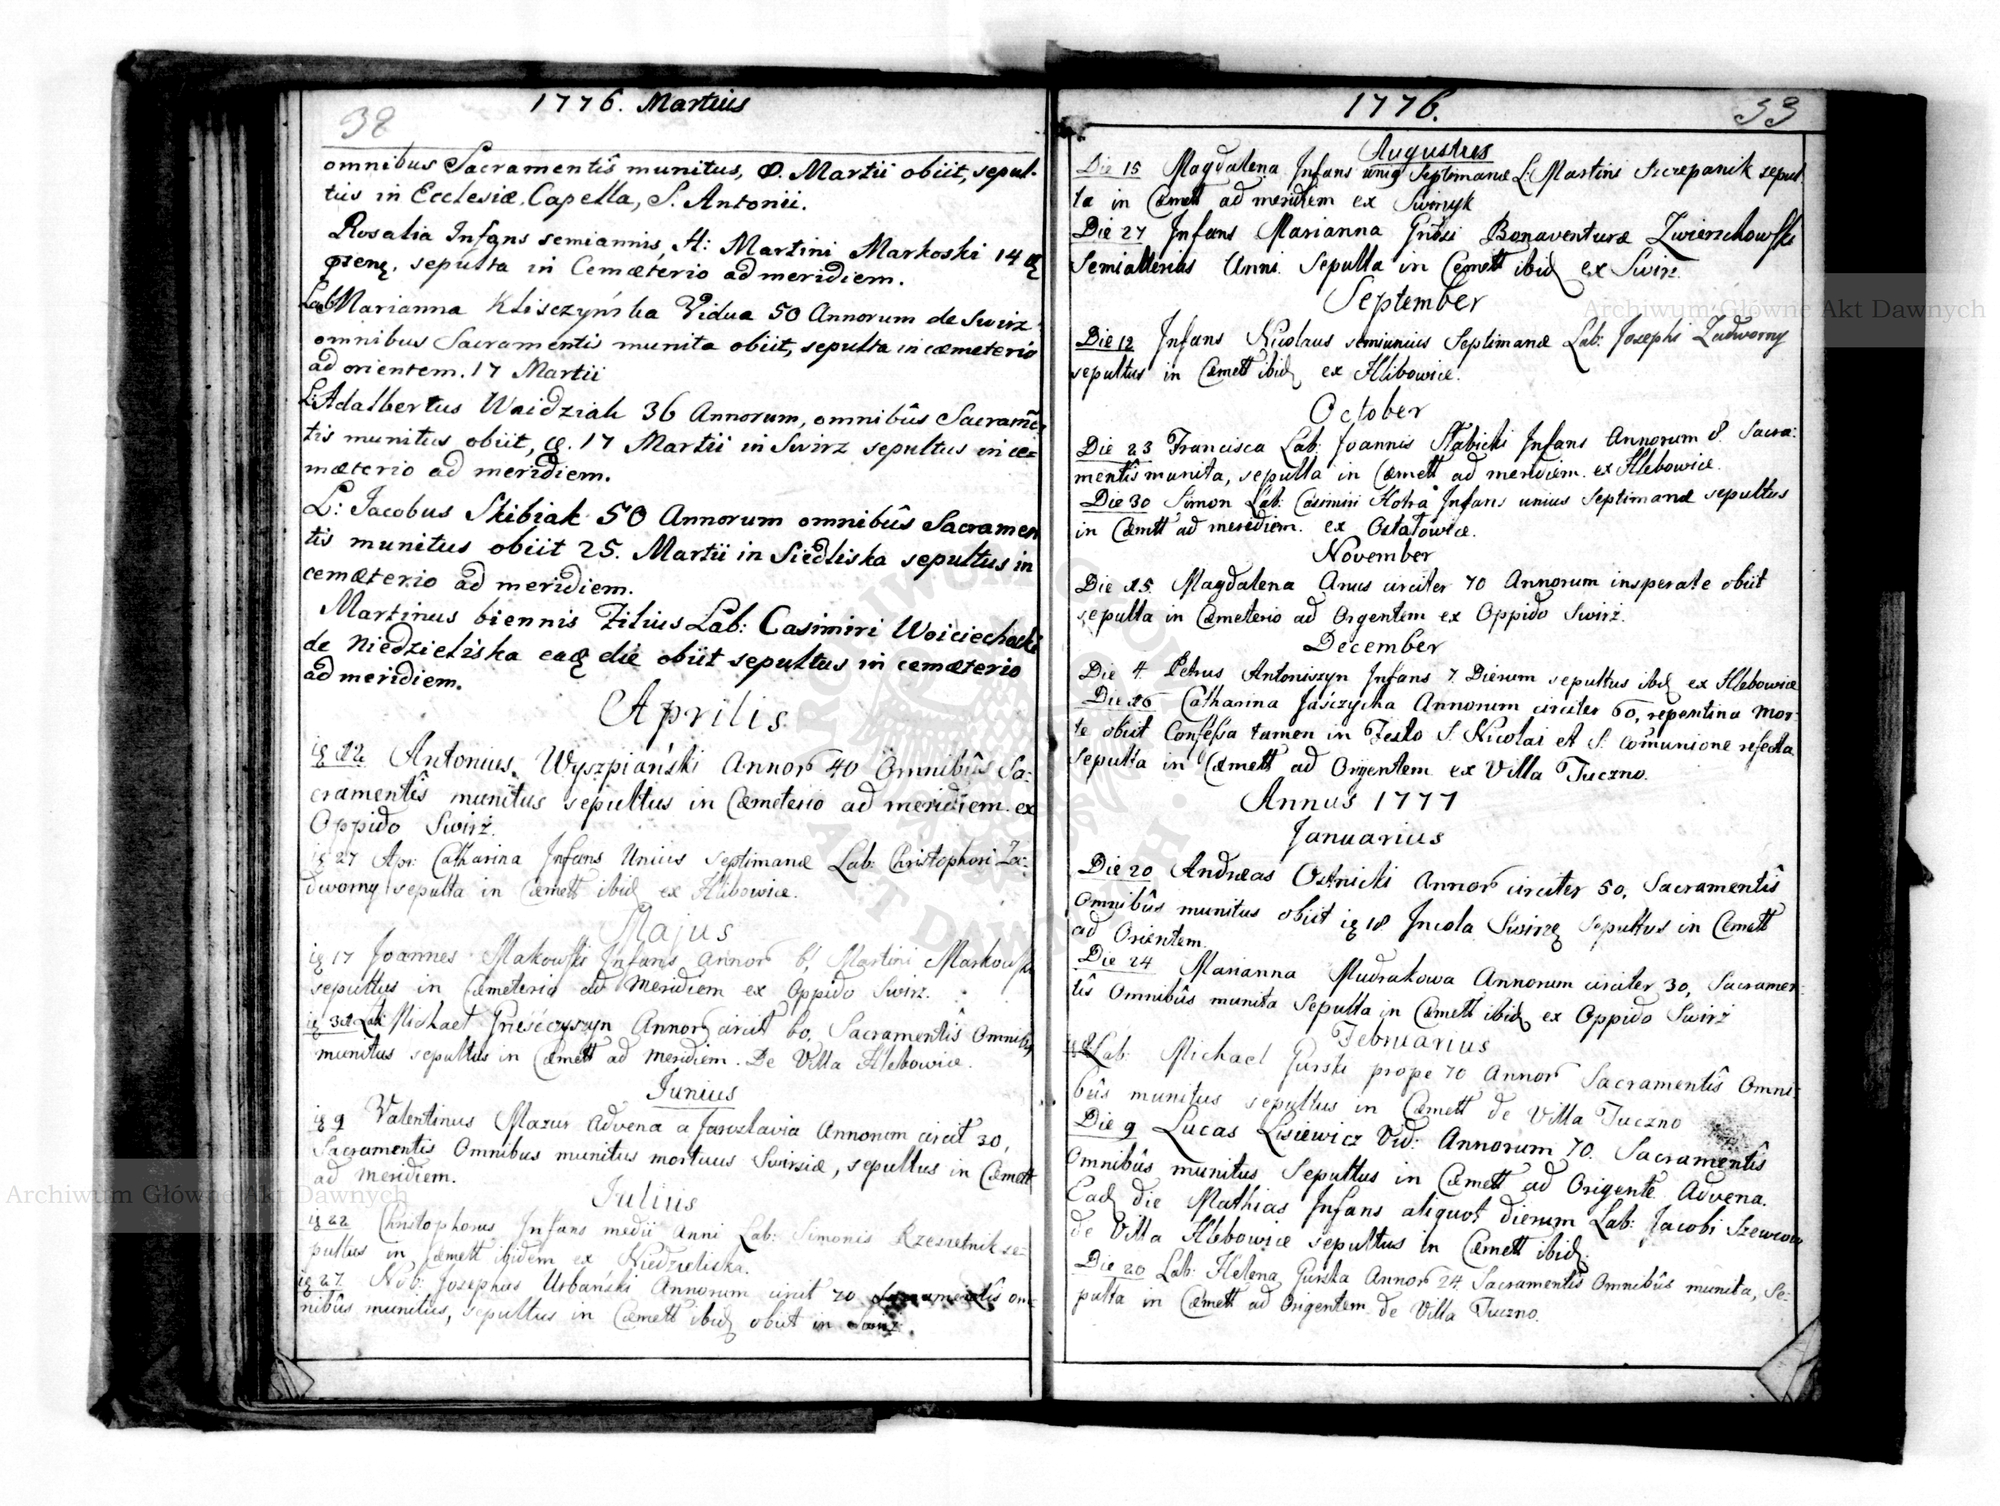 38
1776. Martius
omnibus Sacramentîs munitus, 8. Martii obiit, sepul-
tus in Ecclesiæ Capella, S. Antonii.
Rosalia Infans semiannis, H: Martini Markoski 14
sepulta in Cemæterio ad meridiem.
Lab Marianna Kliszczyńska Vidua 50 Annorum de Swirz
omnibus Sacramentis munita obiit, sepulta in cæmeterio
ad orientem. 17 Martii
L: Adalbertus Woidziak 36 Annorum, omnibûs Sacramẽ
tis munitus, obiit, 17 Martii in Swirz sepultus in ce-
mæterio ad meridiem.
L: Jacobus Skibiak 50 Annorum omnibûs Sacramen
tis munitus obiit 25. Martii in Siedliska sepultus in
cemæterio ad meridiem.
Martinus biennis Filius Lab: Casimiri Woiciechoski
de Niedzieliska eaď die obiit sepultus in cemæterio
ad meridiem.
Aprilis
12 Antonius Wyszpiański Annor 40 Omnibûs Sa-
cramentîs munitus sepultus in Cæmeterio ad meridiem ex
Oppido Swirż.
27 Apr: Catharina Infans Unius Septimanæ Lab: Christophori Za-
dworny sepulta in Cæmett ibid ex Hlibowice.
Majus
17 Joannes Makowski Infans Annor 6, Martini Markowski
sepultus in Cæmeterio ad Meridiem ex Oppido Swirż.
Lab: Michael Annor circit 60, Sacramentîs Omnibus
munitus sepultus in Cæmett ad meridiem. De Villa Hlebowice.
Junius
9 Valentinus Mazur Advena a Jaroslavia Annorum circit 30,
Sacramentis Omnibus munitus mortuus Swirsiæ, sepultus in Cæmett
ad meridiem.
Julius
22 Christophorus Infans medii Anni Lab: Simonis Rzeszetnik se-
pultus in Cæmett ibidem ex Niedzieliska.
27 Nob: Josephus Urbański Annorum circit 70 Sacramentîs om-
nibûs munitus, sepultus in Cæmett ibid obiit in
33
1776.
Augustus
Die 15 Magdalena Infans unius Septimanæ L: Martini Szczepanik sepul
ta in Cæmett ad meridiem ex
Die 27 Infans Marianna Bonaventuræ Zwierzchowski
Semialterius Anni. Sepulta in Cæmett ibid ex Swirz.
September
Die 12 Infans Nicolaus Septimanæ Lab: Josephi Zadworny
sepultus in Cæmett ibid ex Hlibowice.
October
Die 23 Francisca Lab: Joannis Słabicki Infans Annorum 8. Sacra:
mentîs munita, sepulta in Cæmett ad meridiem. ex Hlebowice.
Die 30 Simon Lab: Casimiri Infans unius Septimanæ sepultus
in Cæmett ad meridiem. ex Ostałowice.
November
Die 15. Magdalena Anus circiter 70 Annorum insperate obiit
sepulta in Cæmeterio ad Orgentem ex Oppido Swirż.
December
Die 4. Petrus Antoniszyn Infans 7. Dierum sepultus ibid ex Hlebowice
Die 16 Catharina Jaszczycha Annorum circiter 60, repentina mor-
te obiit Confessa tamen in Festo S. Nicolai et S. comunione refecta
sepulta in Cæmett ad Orgentem ex Villa Tuczno.
Annus 1777
Januarius
Die 20 Andreas Ostnicki Annor circiter 50, Sacramentîs
Omnibûs munitus obiit 18 Incola sepultus in Cæmett
ad Orientem.
Die 24 Marianna Mudrakowa Annorum circiter 30, Sacramen-
tîs Omnibûs munita Sepulta in Cæmett ibid ex Oppido Swirż
Februarius
Lab: Michael Gurski prope 70 Annor Sacramentîs Omni-
bûs munitus sepultus in Cæmett de Villa Tuczno
Die 9 Lucas Lisiewicz Vid: Annorum 70. Sacramentîs
Omnibûs munitus Sepultus in Cæmett ad Origente. Advena.
Eaď die Mathias Infans aliquot dierum Lab: Jacobi
de Villa Hlebowice sepultus in Cæmett ibid.
Die 20 Lab: Helena Gurska Annor 24 Sacramentîs Omnibûs munita, Se-
pulta in Cæmett ad Origentem de Villa Tuczno.
Archiwum Główne Akt Dawnych
Archiwum Główne Akt Dawnych